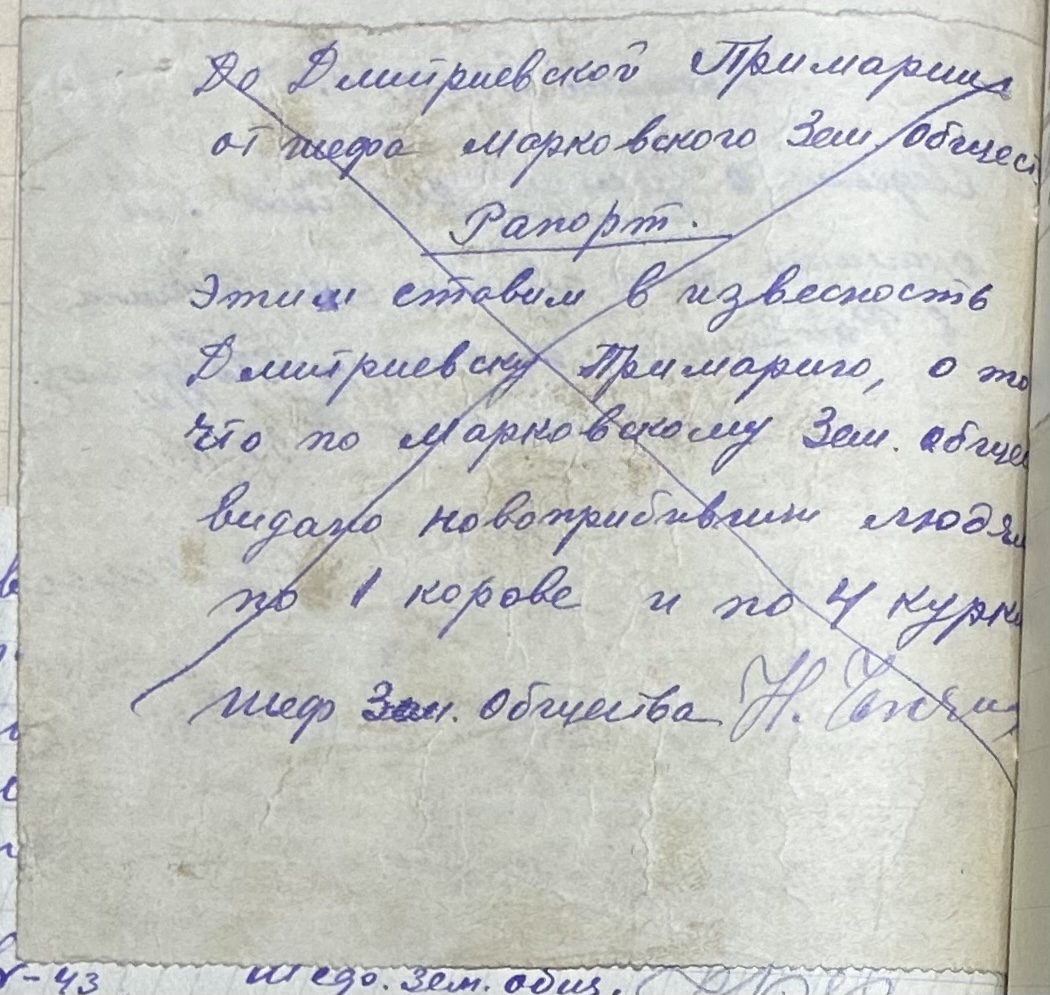 До Дмитриевской Примарии
от шефа Марковского Зем. Общест
Рапорт.
Этим ставим в извесность
Дмитриевску Примарию, о то
что по Марковскому Зем. общес
видано новоприбившим людям
по 1 корове и по 4 курки
шеф Зем. Общества Н.
-43 шеф. Зем. общ.